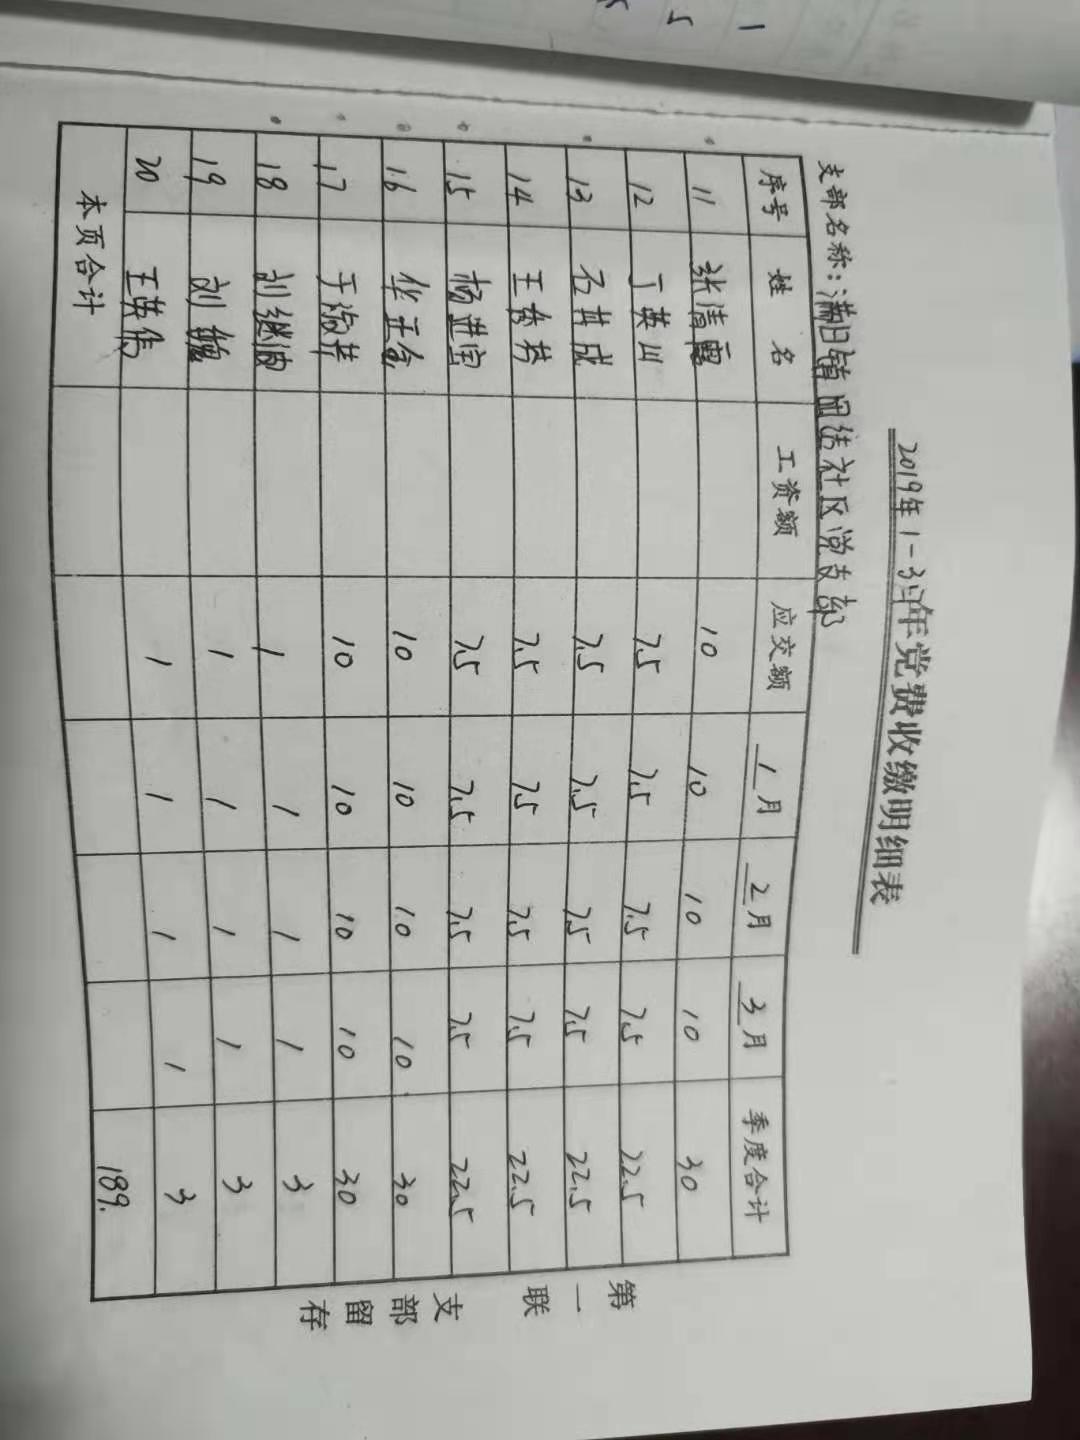 2019年1-3月年党费收缴明细表
支部名称:满井镇田洁社区党支部
序号 姓名 工资额 应交额 1月 2月 3月 季度合计
11 张清霞 10 10 10 10 30
12 丁英川 7.5 7.5 7.5 7.5 22.5
13 石井成 7.5 7.5 7.5 7.5 22.5
14 王秀芬 7.5 7.5 7.5 7.5 22.5
15 杨进宝 7.5 7.5 7.5 7.5 22.5
16 华正会 10 10 10 10 30
17 于淑芹 10 10 10 10 30
18 刘继波 1 1 1 1 3
19 刘 1 1 1 1 3
20 王英伟 1 1 1 1 3
本页合计 189.
第一联 支部留存
1
5